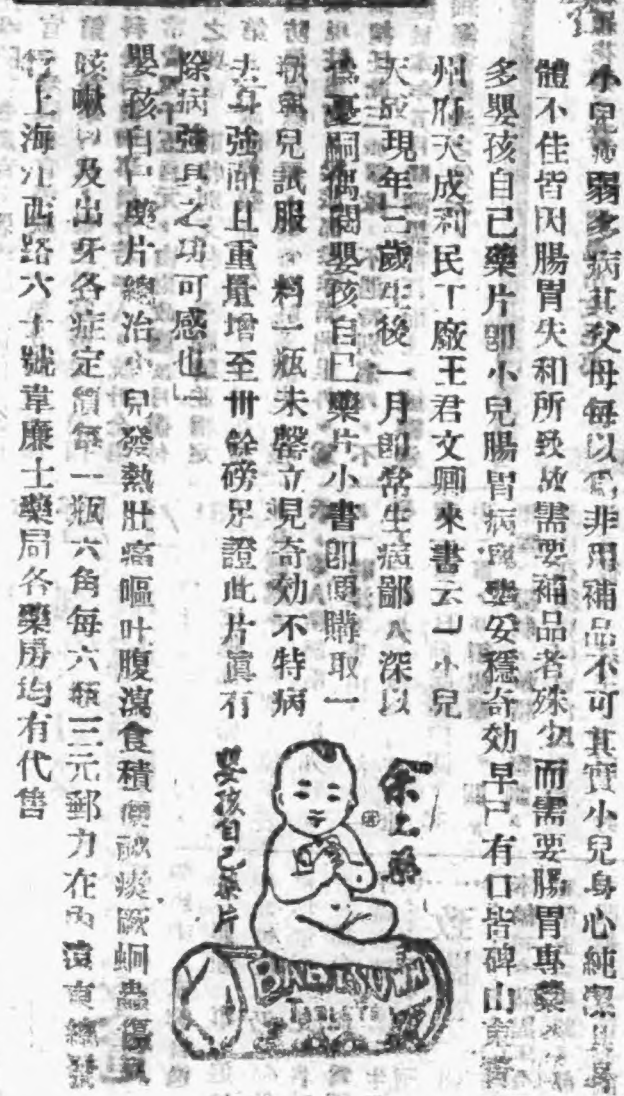 小兒瘦弱多病其父母每以爲非用補品不可其實小兒身心純潔其身
體不佳皆因腸胃失和所致故需要補品者殊少而需要腸胃專藥
多嬰孩自己藥片卽小兒腸胃病安穩奇効早已有口皆碑山東
州府天成利民工廠王君文卿來書云「小兒
天成現年二歲生後一月卽常生病鄙人深以
爲憂嗣偶閱嬰孩自己藥片小書卽便購取一
瓶與兒試服不料一瓶未罄立見奇効不特病
去身強而且重量增至卅餘磅足證此片眞有
除病強身之功可感也」
嬰孩自己藥片總治小兒發熱肚痛嘔吐腹瀉食積便祕痰厥蛔蟲傷風
咳嗽以及出牙各症定價每一瓶六角每六瓶三元郵力在內遠東總發
行上海江西路六十號韋廉士藥局各藥房均有代售
余之藥
嬰孩自己藥片
BABY'S OWN
TABLETS